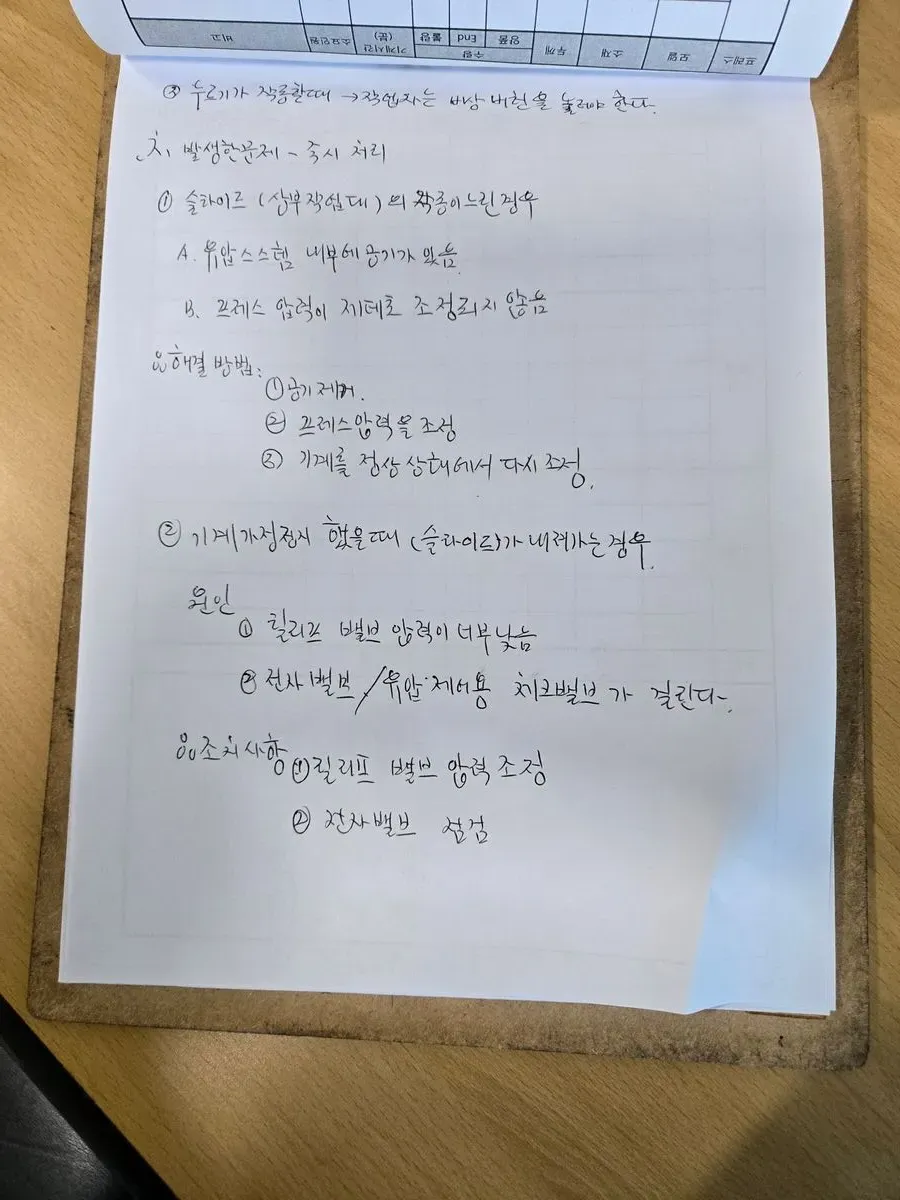 프레스 모델 소재 두께 수량 양품 End 불량 기계시간 (분) 소요인원 비고
③ 누르기가 작동할때 → 작업자는 비상 버튼을 눌러야 한다.
치. 발생한문제 - 즉시 처리
① 슬라이드 (상부작업대)의 작동이느린경우
A. 유압스스템 내부에 공기가 있음
B. 프레스 압력이 제데로 조정되지 않음
해결 방법:
① 공기제거.
② 프레스압력을 조정
③ 기계를 정상 상태에서 다시 조정.
② 기계가정점지 했을때 (슬라이드)가 내려가는경우.
원인
① 릴리프 밸브 압력이 너무낮음
② 전자밸브/유압·제어용 체크밸브가 걸린다.
조치사항 ① 릴리프 밸브 압력 조정
② 전자밸브 점검